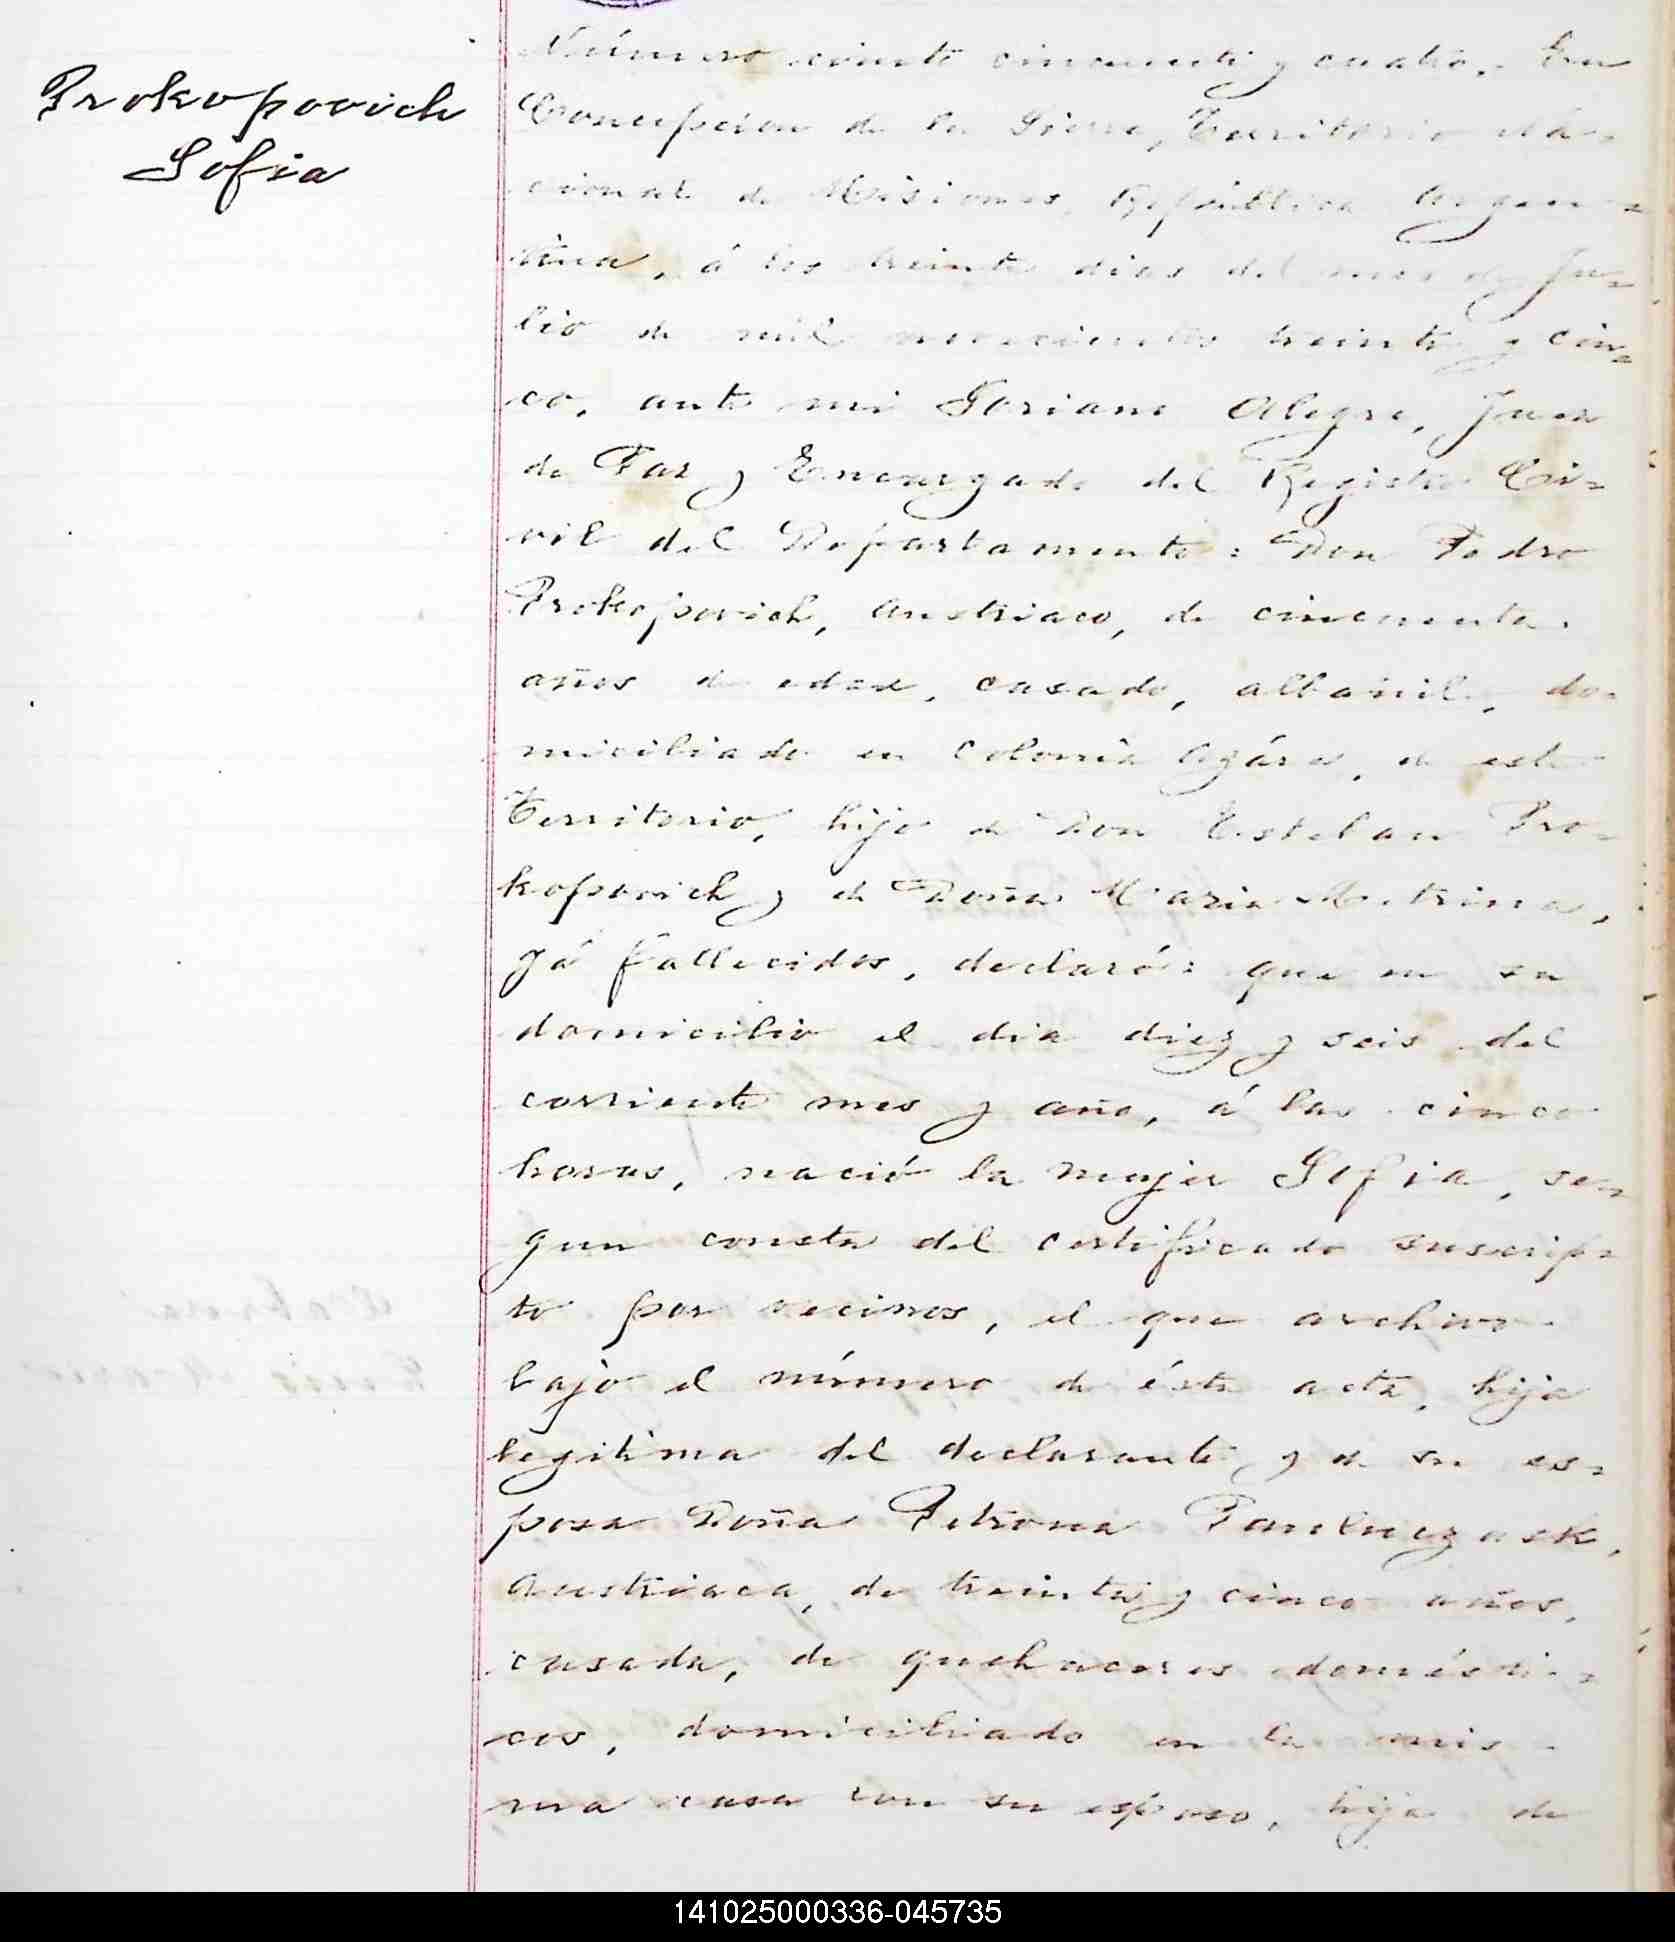 Prokopovich
Sofia
Número ciento cincuenta y cuatro. En
Concepcion de la Sierra, Territorio Na=
cional de Misiones, República Argen=
tina, á los treinta dias del mes de Ju=
lio de mil novecientos treinta y cin=
co, ante mi Alegre, Juez
de Paz y Encargado del Registro Ci=
vil del Departamento: Don Pedro
Prokopovich, austriaco, de cincuenta
años de edad, casado, albañil, do=
miciliado en Colonia Azára, de este
Territorio, hijo de Don Esteban Pro=
kopovich y de Doña Maria
yá fallecidos, declaró: que en su
domicilio el dia diez y seis del
corriente mes y año, á las cinco
horas, nació la mujer Sofia, se=
gun consta del certificado suscrip=
to por vecinos, el que archivo
bajo el número de ésta acta, hija
legitima del declarante y de su es=
posa Doña Petrona
austriaca, de treinta y cinco años,
casada, de quehaceres domésti=
cos, domiciliado en la mis=
ma casa con su esposo, hija de
141025000336-045735